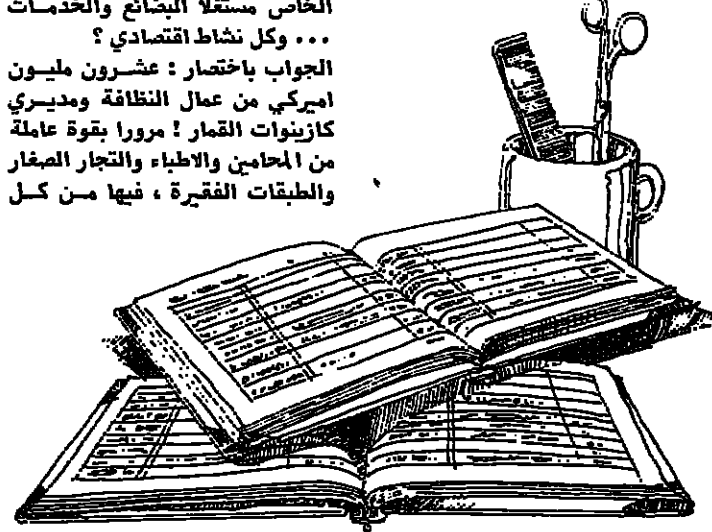 الخاص مستغلا البضائع والخدمات
... وكل نشاط اقتصادي ؟
الجواب باختصار : عشرون مليون
اميركي من عمال النظافة ومديري
كازينوات القمار ! مرورا بقوة عاملة
من المحامين والاطباء والتجار الصغار
والطبقات الفقيرة ، فيها من كل